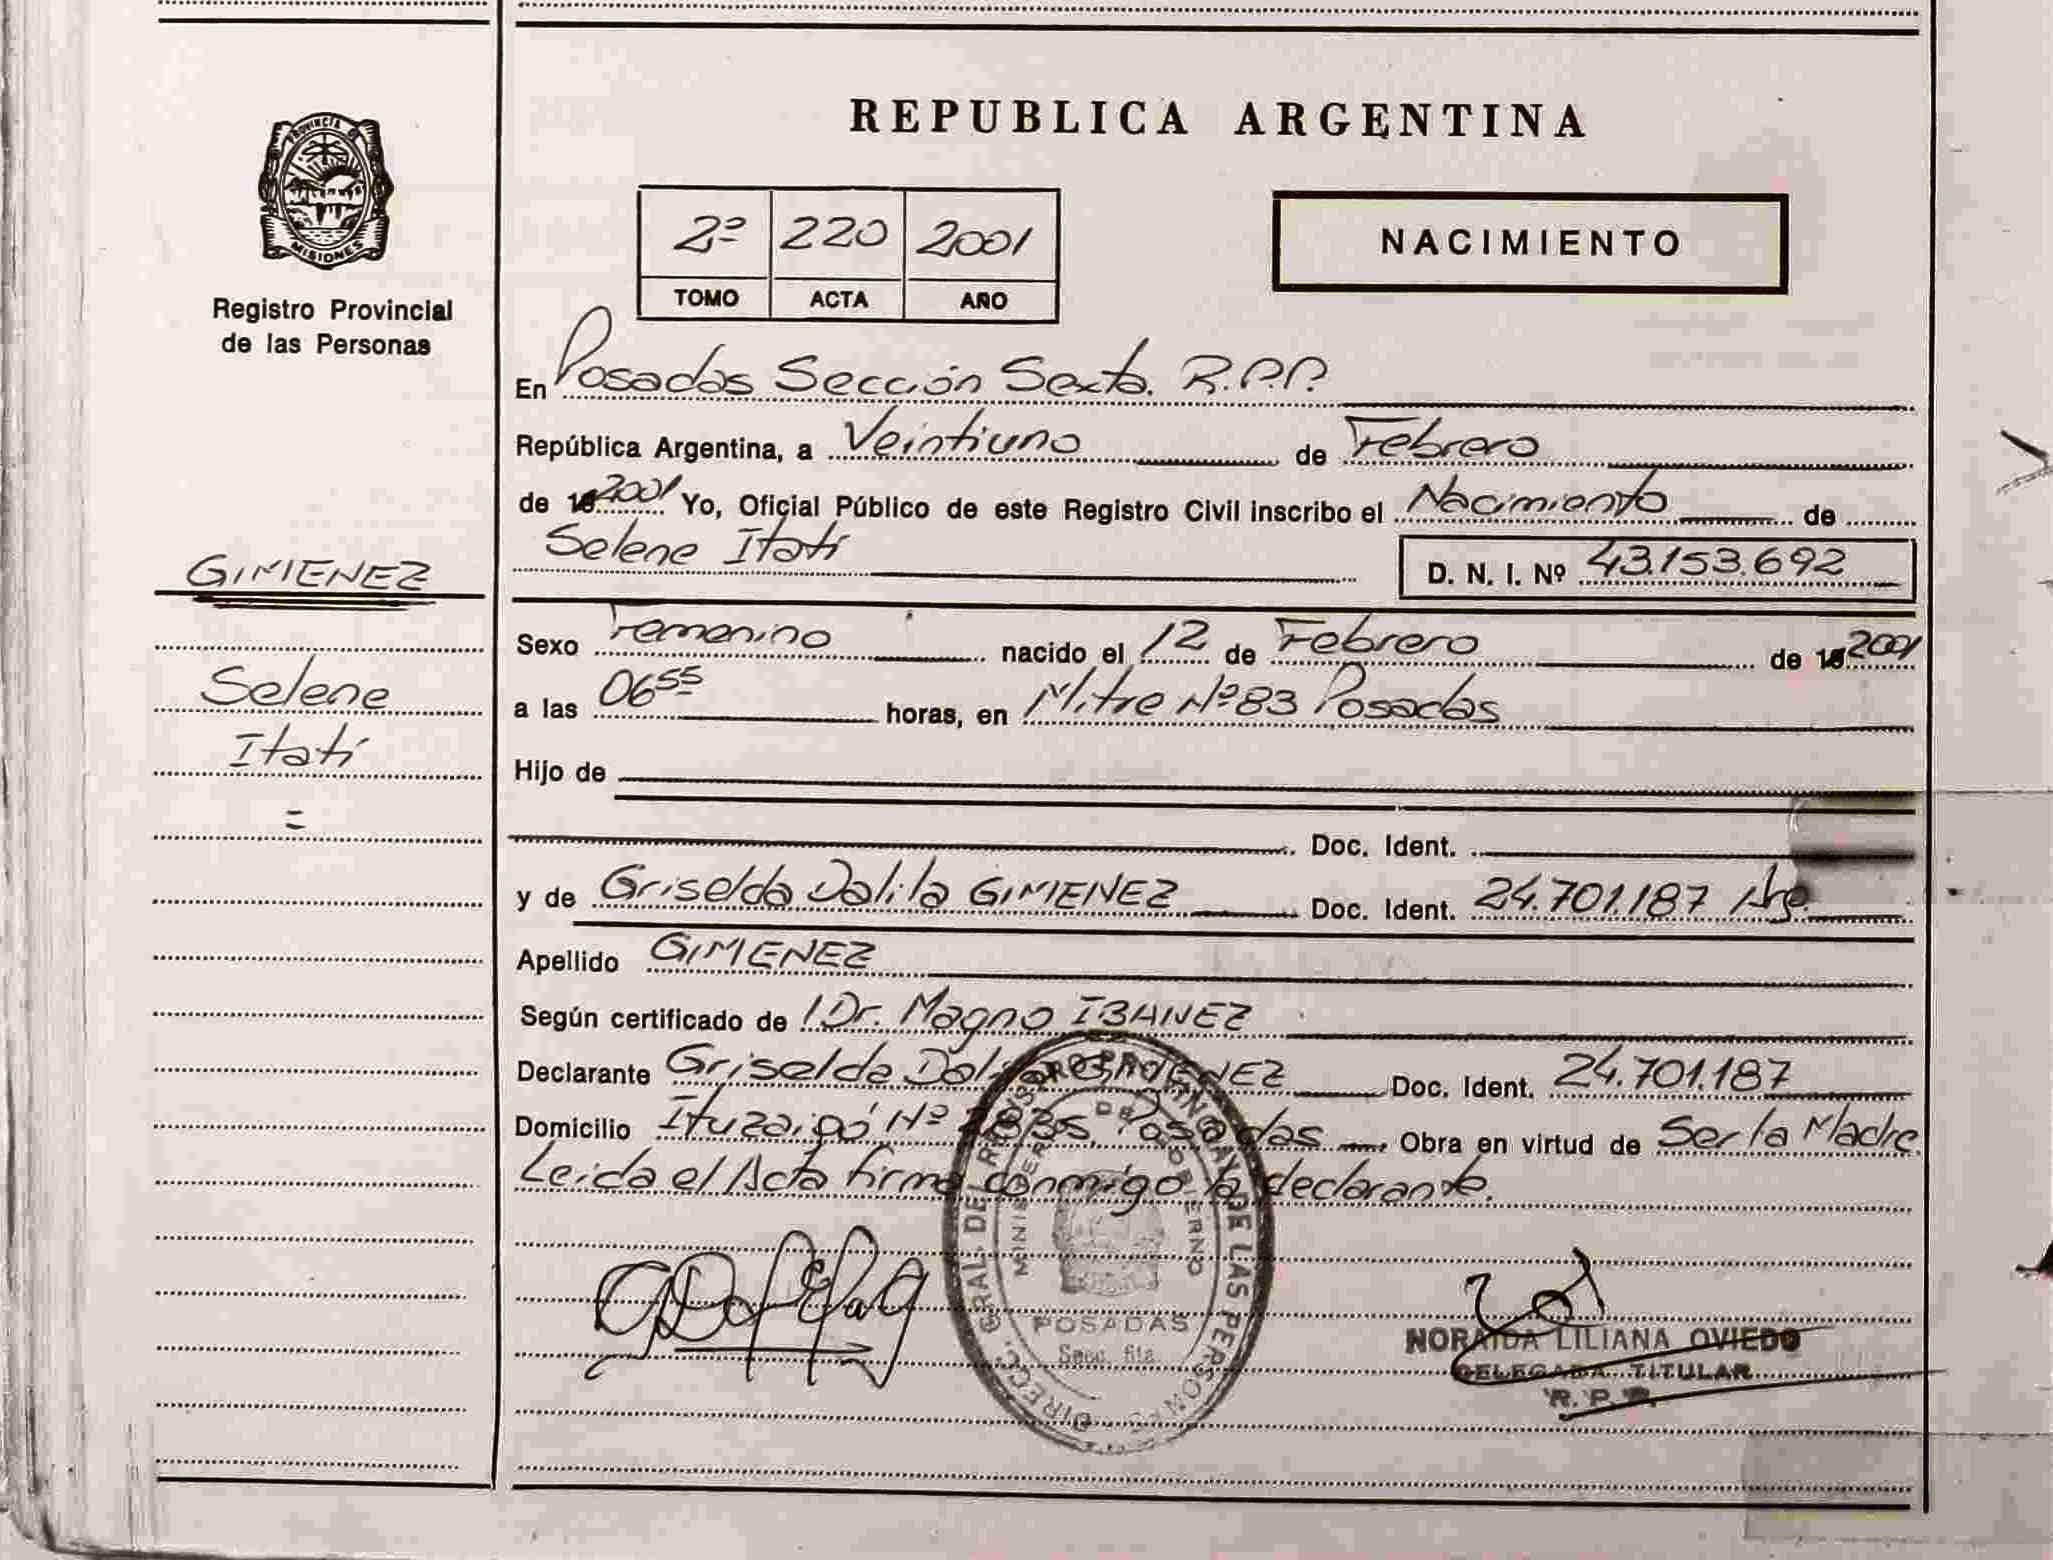 REPUBLICA ARGENTINA
PROVINCIA DE
MISIONES
Registro Provincial
de las Personas
2º 220 2001
TOMO ACTA AÑO
NACIMIENTO
En Posadas Sección Sexta. R.P.P.
República Argentina, a Veintiuno de Febrero
de 2001 Yo, Oficial Público de este Registro Civil inscribo el Nacimiento de
Selene Itatí
D. N. I. Nº 43.153.692
GIMENEZ
Selene
Itatí
=
Sexo Femenino nacido el 12 de Febrero de 2001
a las 06 55 horas, en Mitre Nº 83 Posadas
Hijo de
Doc. Ident.
y de Griselda Dalila GIMENEZ Doc. Ident. 24.701.187 Arg.
Apellido GIMENEZ
Según certificado de 1 Dr. Magno IBANEZ
Declarante Griselda Dalila GIMENEZ Doc. Ident. 24.701.187
Domicilio Ituzaigó Nº Posadas Obra en virtud de Ser la Madre.
Leida el Acta firma conmigo la declarante.
DIRECC. GRAL. DEL REGISTRO PROVINCIAL DE LAS PERSONAS
MINISTERIO DE GOBIERNO
POSADAS
Secc. 6ta
NORAIDA LILIANA OVIEDO
DELEGADA TITULAR
R. P. P.